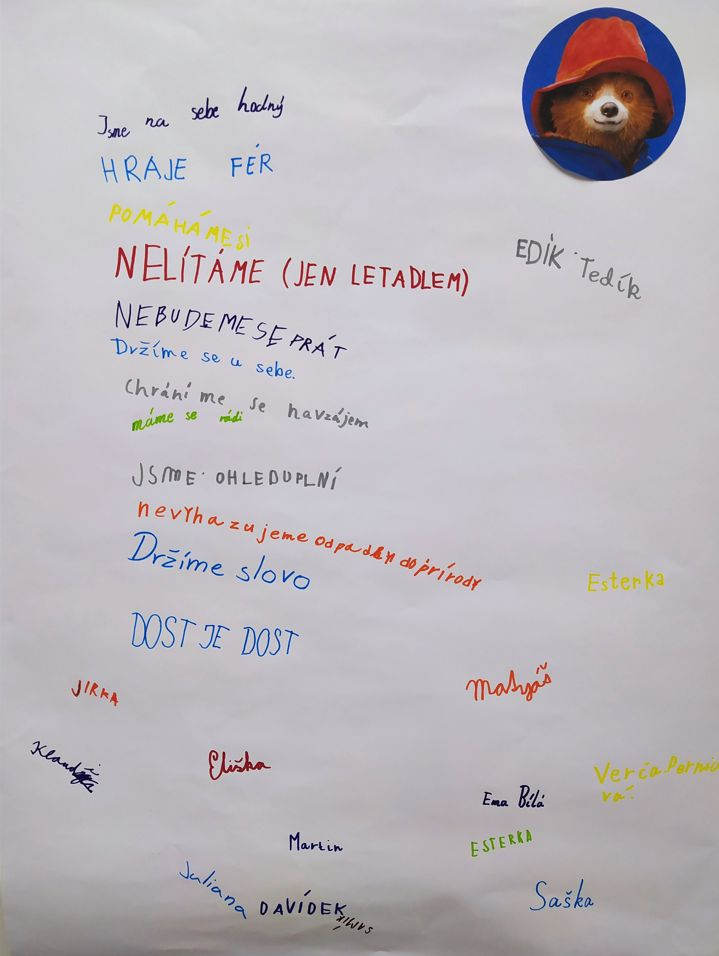 Jsme na sebe hodný
HRAJE FÉR
POMÁHÁME Si
EDÍK Tedík
NELÍTÁME (JEN LETADLEM)
NEBUDEME SE PRÁT
Držíme se u sebe.
Chrání me se navzájem
máme se rádi
JSME OHLEDUPLNÍ
nevyhazujeme odpadky do přírody
Držíme slovo
Esterka
DOST JE DOST
JIRKA
Matyáš
Eliška
Verča Pernica
vá
Ema Bílá
Martin
ESTERKA
Juliana
DAVÍDEK
Saška